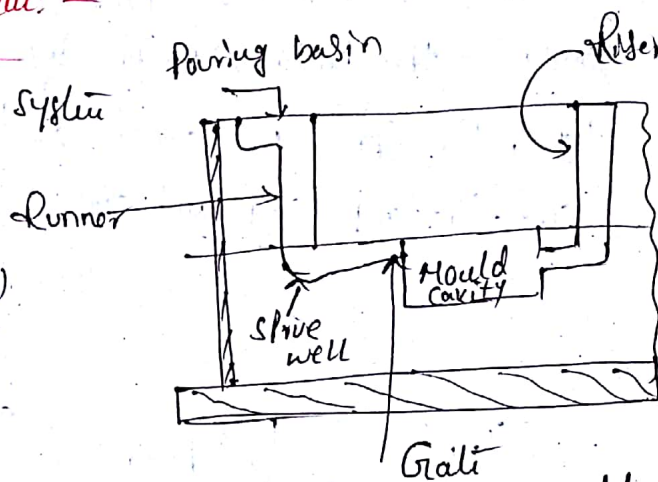 Pouring basin
Riser
System
Runner
Mould
cavity
Sprue
well
Gate